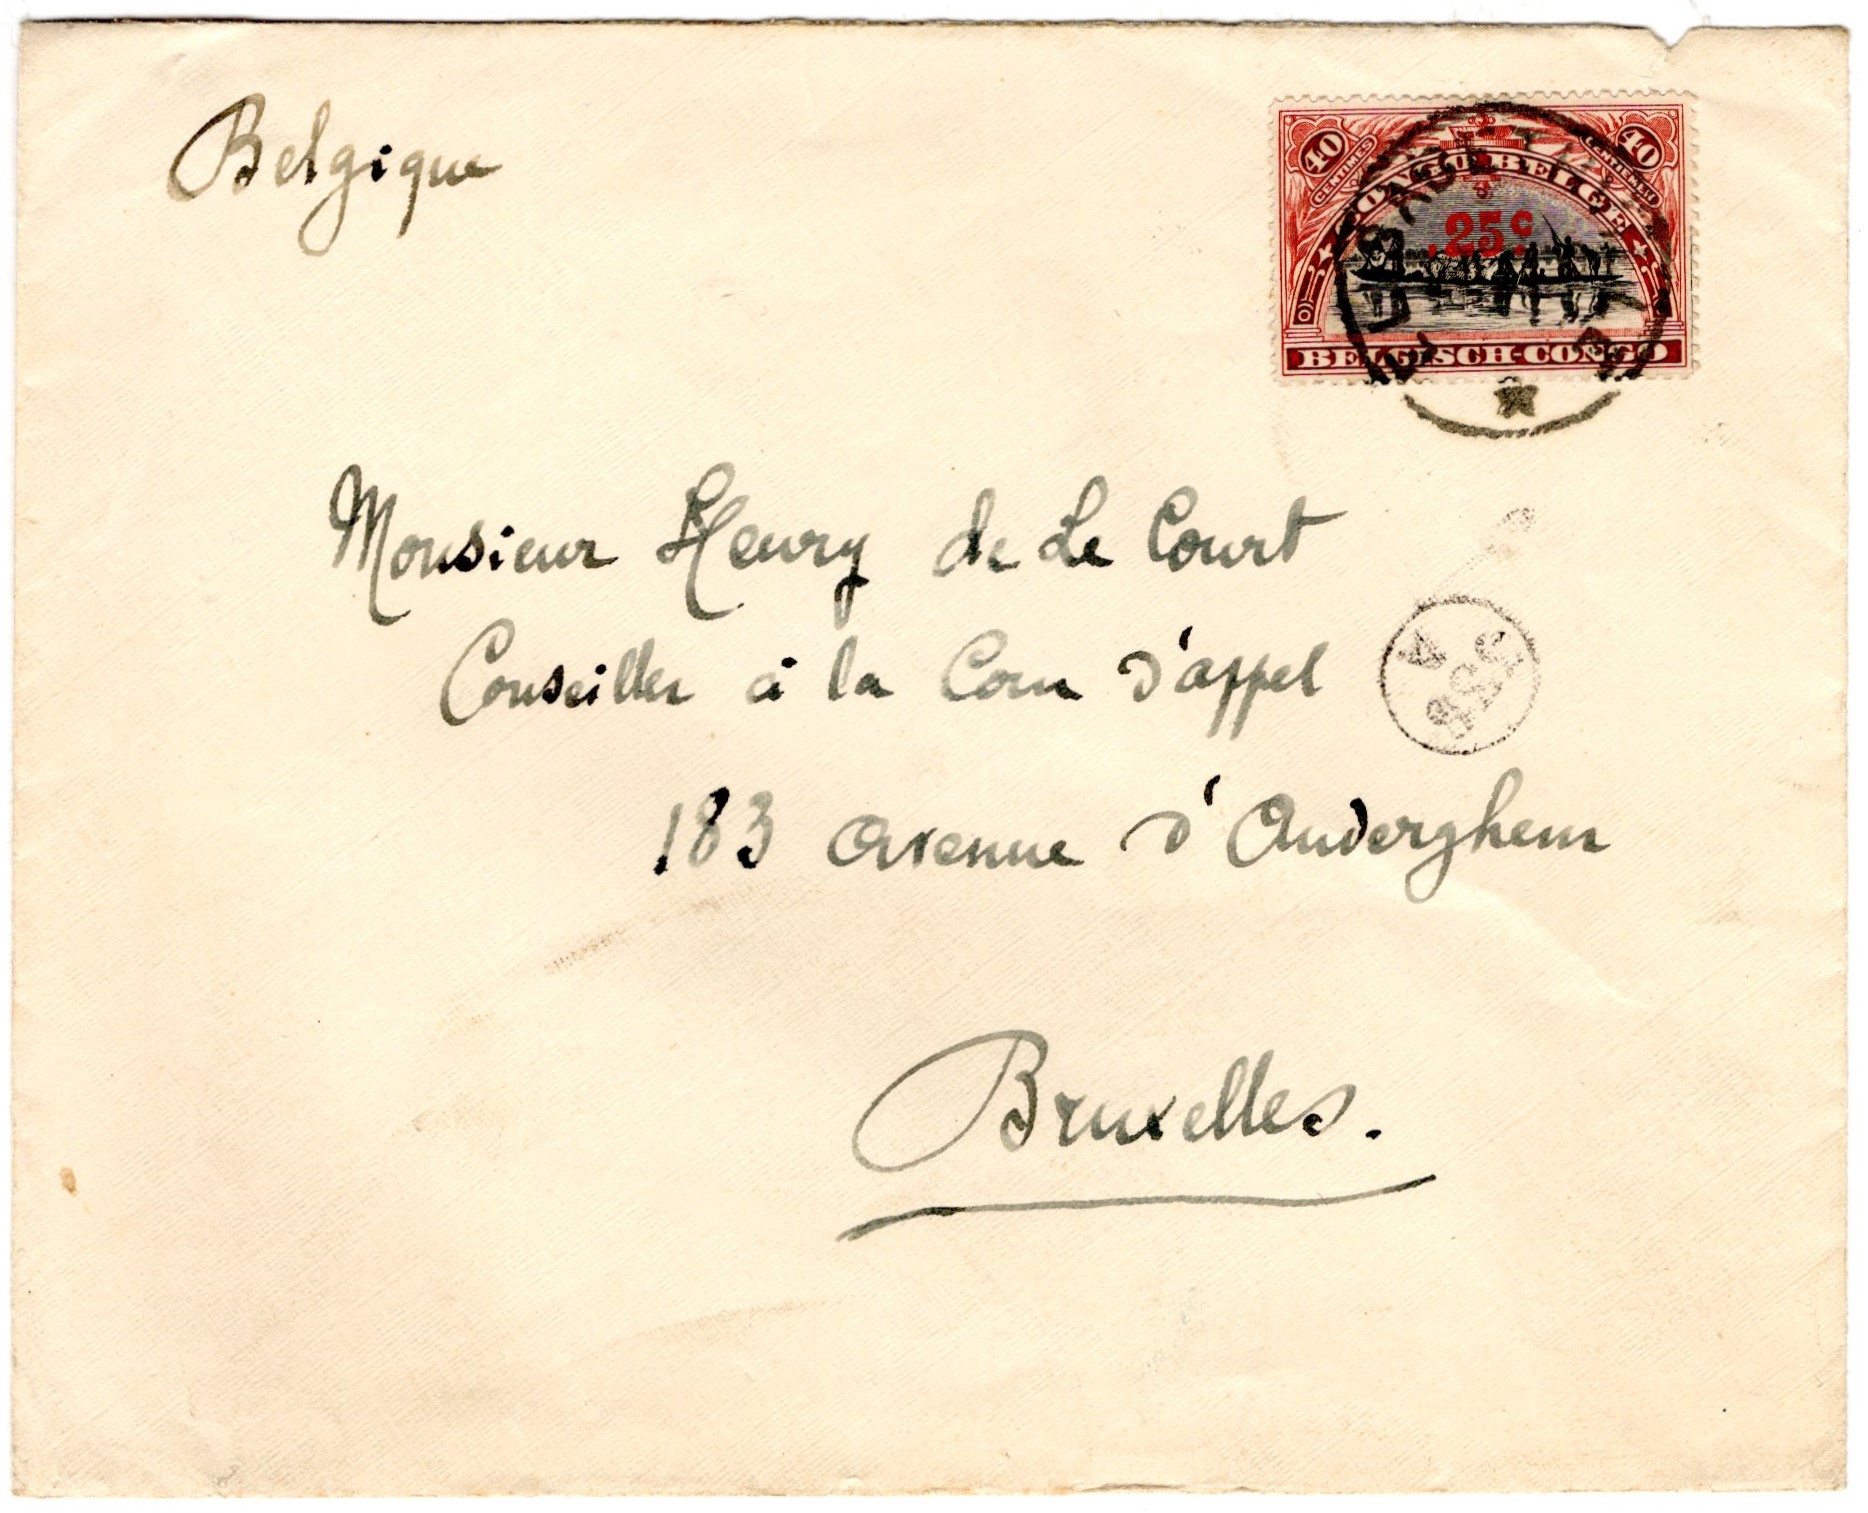 Belgique
40 CENTIMES
40 CENTIMES
CONGO BELGE
25c
BELGISCH-CONGO
Monsieur Henry de Le Court
Conseiller à la Cour d'appel
183 avenue d'Auderghem
Bruxelles.